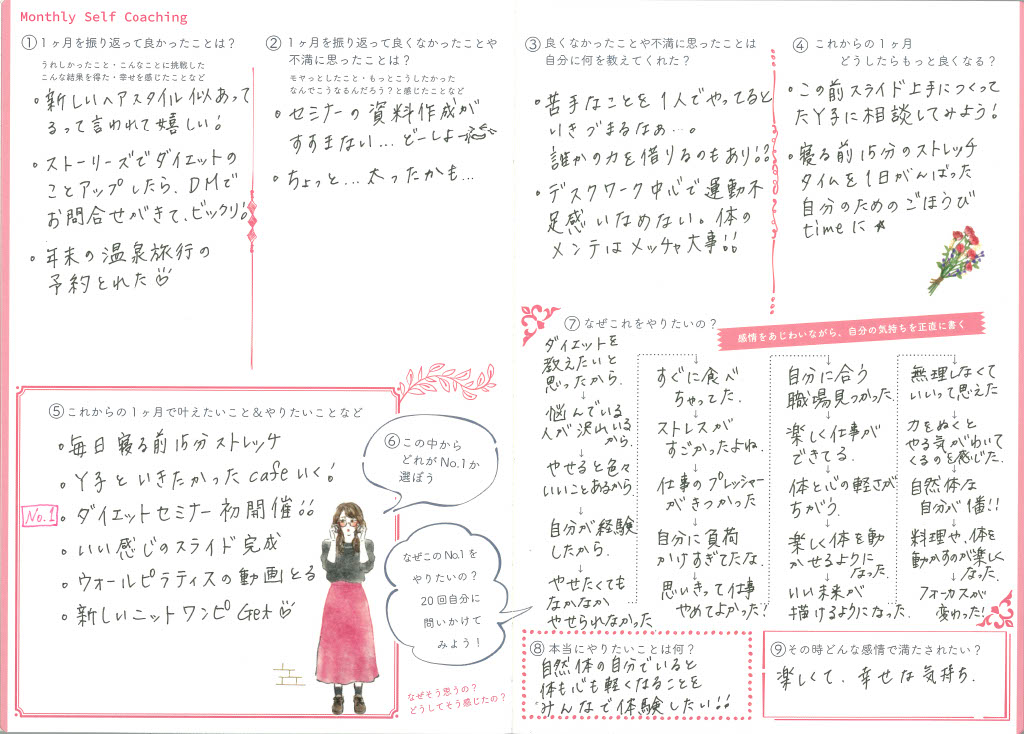 Monthly Self Coaching
①1ヶ月を振り返って良かったことは？
うれしかったこと・こんなことに挑戦した
こんな結果を得た・幸せを感じたことなど
・新しいヘアスタイル似あって
るって言われて嬉しい！
・ストーリーズでダイエットの
ことアップしたら、DMで
お問合せがきて、ビックリ！
・年末の温泉旅行の
予約とれた
②1ヶ月を振り返って良くなかったことや
不満に思ったことは？
モヤっとしたこと・もっとこうしたかった
なんでこうなるんだろう？と感じたことなど
・セミナーの資料作成が
すすまない…どーしよ〜
・ちょっと…太ったかも…
③良くなかったことや不満に思ったことは
自分に何を教えてくれた？
・苦手なことを1人でやってると
いきづまるなぁ…。
誰かの力を借りるのもあり!?
・デスクワーク中心で運動不
足感いなめない。体の
メンテはメッチャ大事!!
④これからの1ヶ月
どうしたらもっと良くなる？
・この前スライド上手につくって
たY子に相談してみよう！
・寝る前15分のストレッチ
タイムを1日がんばった
自分のためのごほうび
timeに★
⑤これからの1ヶ月で叶えたいこと＆やりたいことなど
・毎日寝る前15分ストレッチ
・Y子といきたかったcafeいく！
No.1
・ダイエットセミナー初開催!!
・いい感じのスライド完成
・ウォールピラティスの動画とる
・新しいニットワンピGet
⑥この中から
どれがNo.1か
選ぼう
なぜこのNo.1を
やりたいの？
20回自分に
問いかけて
みよう！
なぜそう思うの？
どうしてそう感じたの？
⑦なぜこれをやりたいの？
感情をあじわいながら、自分の気持ちを正直に書く
ダイエットを
教えたいと
思ったから。
↓
悩んでいる
人が沢山いる
から。
↓
やせると色々
いいことあるから。
↓
自分が経験
したから。
↓
やせたくても
なかなか
やせられなかった
↓
すぐに食べ
ちゃってた。
↓
ストレスが
すごかったよね。
↓
仕事のプレッシャー
がきつかった
↓
自分に負荷
かけすぎてたな。
↓
思いきって仕事
やめてよかった！
↓
自分に合う
職場見つかった。
↓
楽しく仕事が
できてる。
↓
体と心の軽さが
ちがう。
↓
楽しく体を動
かせるように
なった。
↓
いい未来が
描けるようになった。
↓
無理しなくて
いいって思えた
↓
力をぬくと
やる気がわいて
くるのを感じた。
↓
自然体な
自分が1番!!
↓
料理や、体を
動かすのが楽しく
なった。
↓
フォーカスが
変わった！
⑧本当にやりたいことは何？
自然体の自分でいると
体も心も軽くなることを
みんなで体験したい!!
⑨その時どんな感情で満たされたい？
楽しくて、幸せな気持ち。